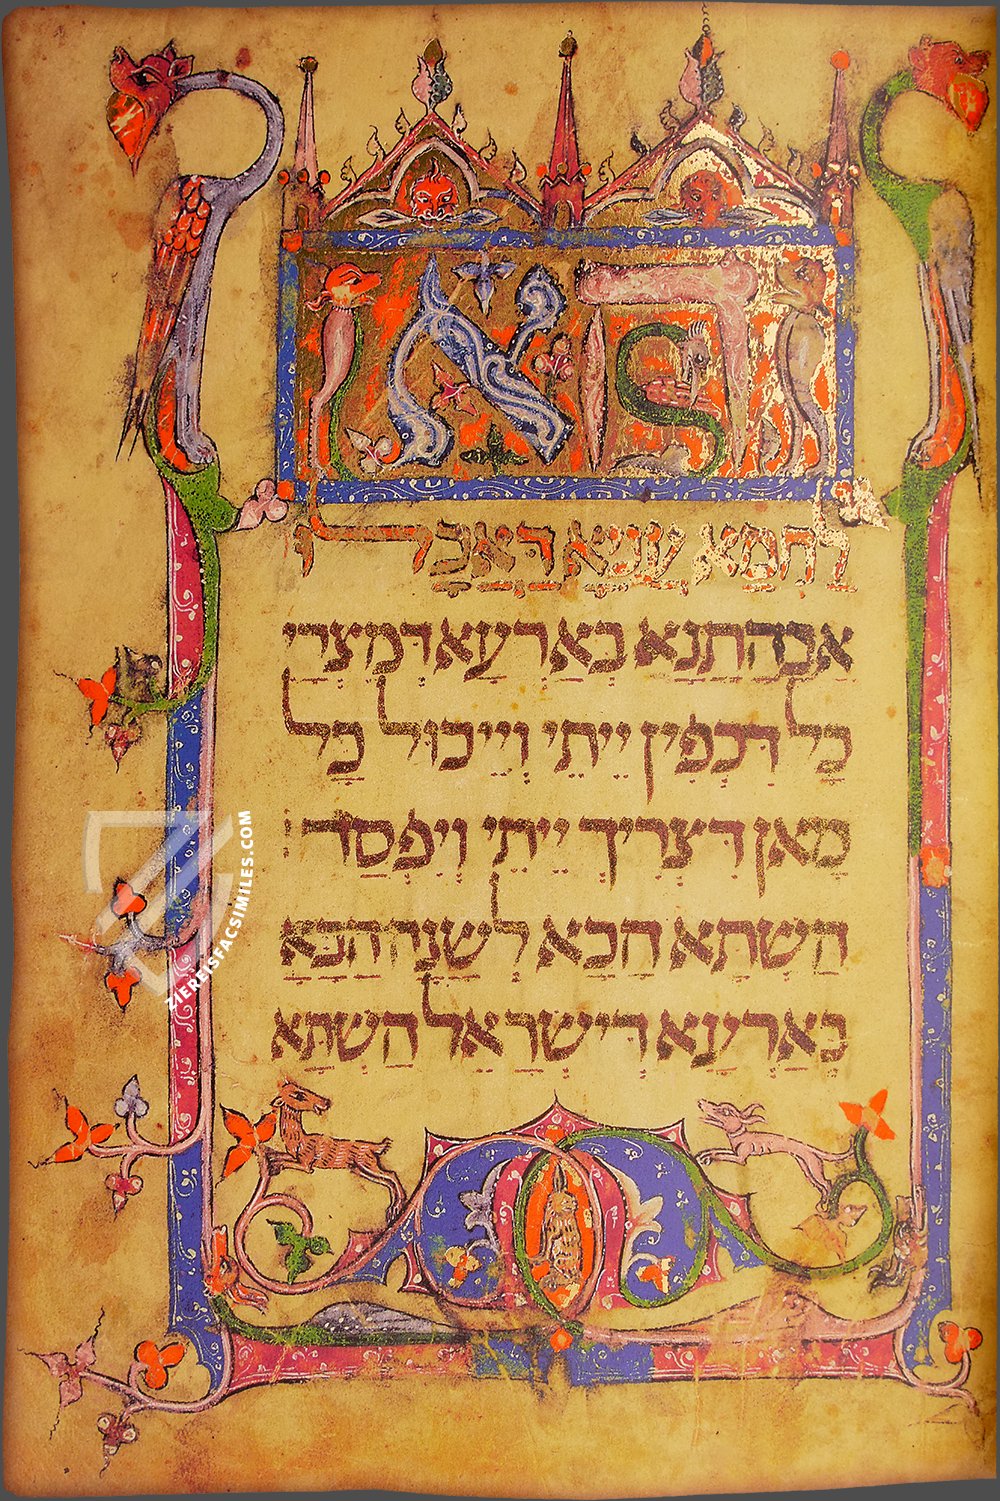 הא
לחמא עניא דאכלו
אבהתנא בארעא דמצרי
כל דכפין ייתי וייכול כל
מאן דצריך ייתי ויפסח:
השתא הכא לשנה הבא
בארעא דישראל השתא
ZIEREISFACSIMILES.COM